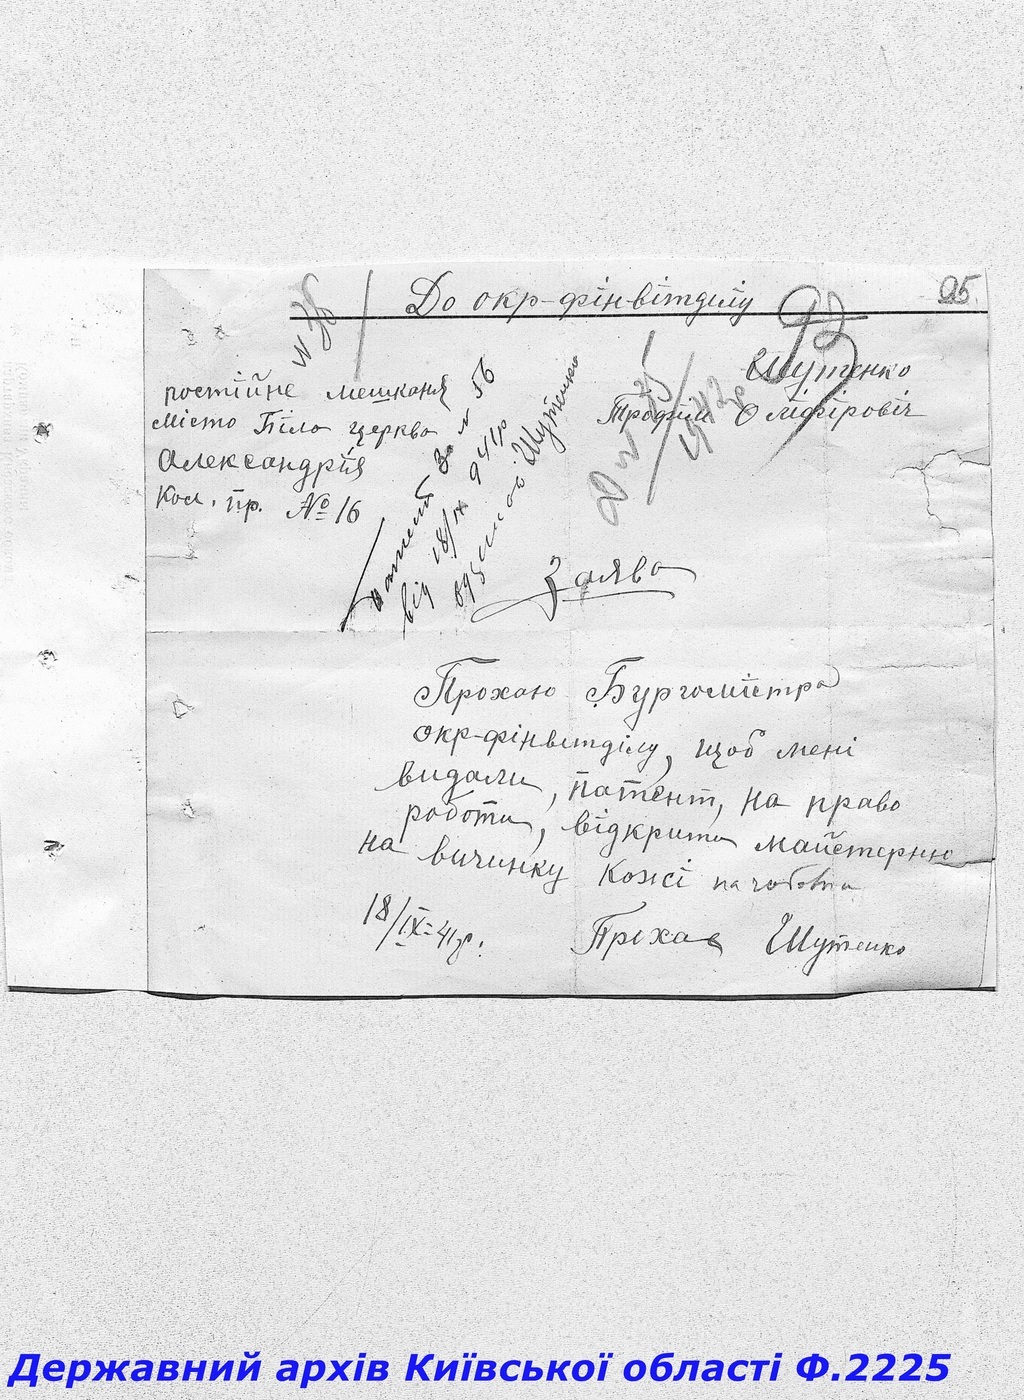 До окр-фінвітділу
95
N 36
93
Шутенко
Трофім Оліфірович
постійне мешканя
місто Біла церква
Александрія
Кол. пр. № 16
патент За N 56
від 18/IX 941р
Шутенко
Заява
Прохаю Бургомістра
окр-фінвітділу, щоб мені
видали, патент, на право
роботи, відкрити майстерню
на вичинку кожі на чоботи
18/IX-41р.
Прохач Шутенко
Державний архів Київської області Ф.2225